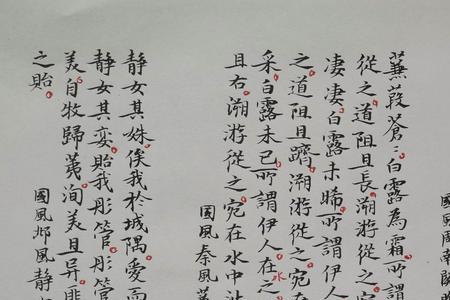 國風周南關雎
蒹葭蒼〻白露為霜所謂
從之道阻且長溯游從之
淒淒白露未晞所謂伊人
之道阻且躋溯游從之宛在
采白露未已所謂伊人在之
水
且右溯游從之宛在水中沚
國風秦風蒹
静女其姝俟我於城隅愛而
静女其孌貽我彤管彤管
美自牧歸荑洵美且异匪
之貽
國風邶風静